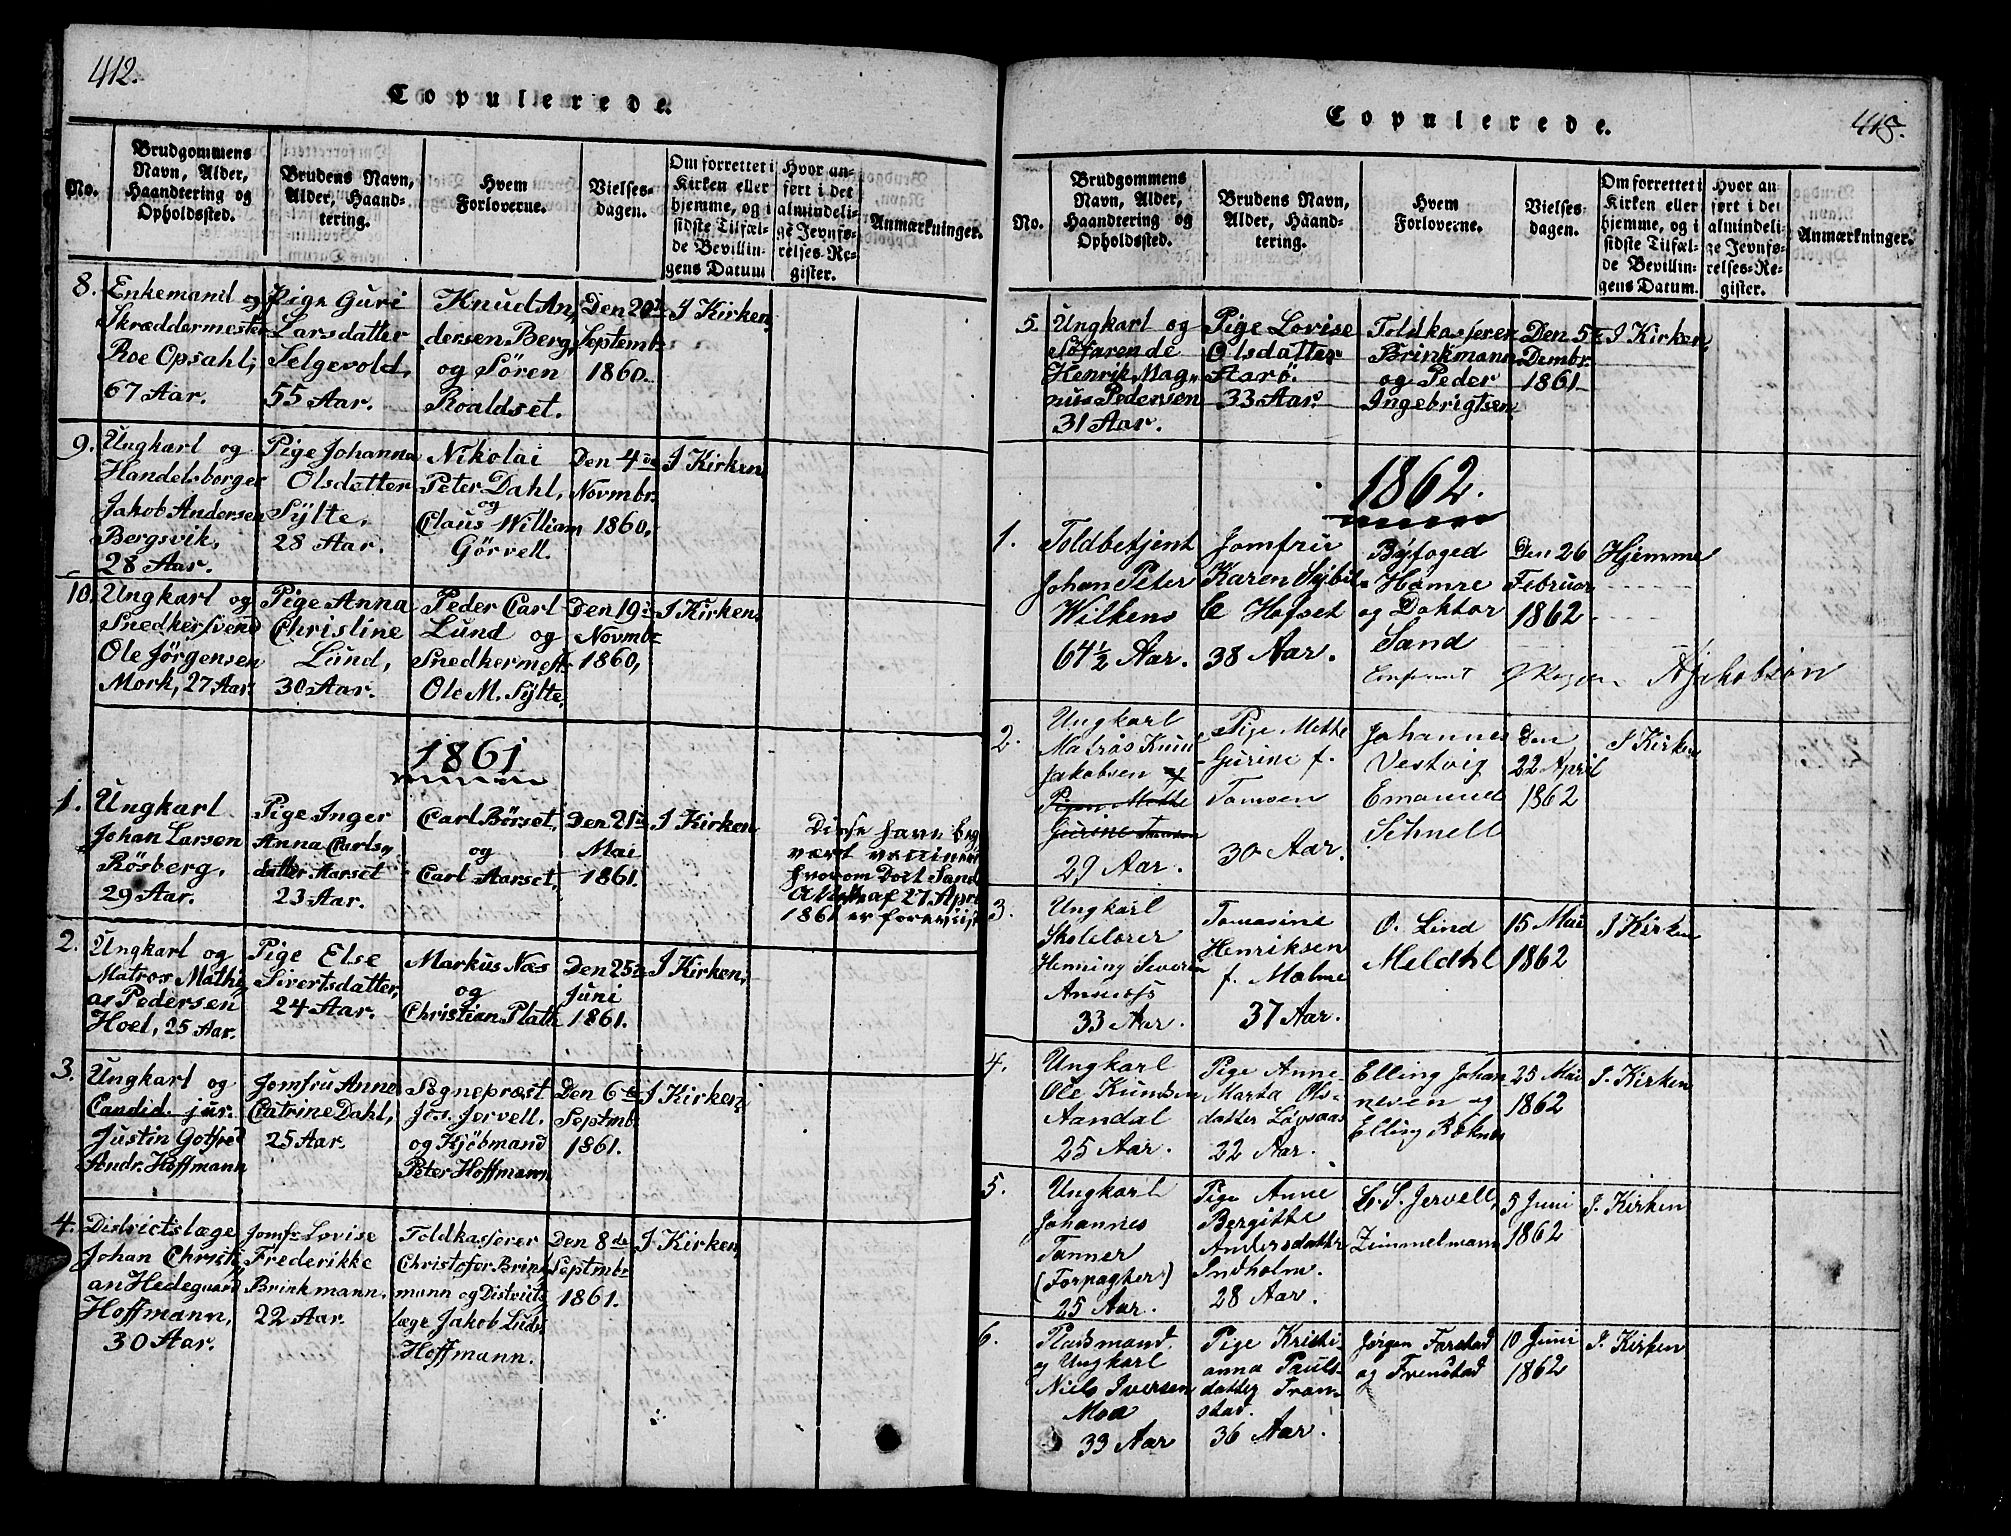 412.
Copulerede.
No.
Brudgommens
Navn, Alder,
Haandtering og
Opholdssted.
Brudens Navn,
Alder, Haand-
tering.
Hvem
Forloverne.
Vielses-
dagen.
Om forrettet i
Kirken eller
hjemme, og i
sidste Tilfæl-
de Bevillin-
gens Datum
Hvor an-
ført i det
almindeli-
ge Jevnfø-
relses-Re-
gister.
Anmærkninger.
8.
Enkemand og
Skræddermester
Roe Opsahl,
67 Aar.
Pige Guri
Larsdatter
Selgevold,
55 Aar.
Knud An-
dersen Berg,
og Søren
Roaldset.
Den 20de
Septembr
1860.
I Kirken,
9.
Ungkarl og
Handelsborger
Jakob Andersen
Bergsvik,
28 Aar.
Pige Johanna
Olsdatter
Sylte,
28 Aar.
Nikolai
Peter Dahl,
og
Claus William
Görvell.
Den 4de
Novmbr.
1860,
I Kirken,
10.
Ungkarl og
Snedkersvend
Ole Jörgensen
Mork, 27 Aar.
Pige Anna
Christine
Lund,
30 Aar.
Peder Carl
Lund og
Snedkermestr
Ole M. Sylte,
Den 19de
Novmbr
1860,
I Kirken,
1861
1.
Ungkarl
Johan Larsen
Rösberg,
29 Aar.
Pige Inger
Anna Carls-
datter Aarset
23 Aar.
Carl Börset,
og
Carl Aarset,
Den 21de
Mai
1861.
I Kirken
Disse have beg
vært vaccineret
hvorom Doct Sand
Attest af 27 Apr
1861 er forevist
2.
Ungkarl og
Matros Mathi-
as Pedersen
Hoel, 25 Aar.
Pige Else
Sivertsdatter,
24 Aar.
Markus Næs
og
Christian Plath
Den 25de
Juni
1861.
I Kirken,
3.
Ungkarl og
Candid. jur.
Justin Gotfred
Andr. Hoffmann
Jomfru Anne
Catrine Dahl,
25 Aar.
Sognepræst
Jos. Jervell.
og Kjöbmand
Peter Hoffmann
Den 6te
Septmbr
1861.
I Kirken,
4.
Districtslæge
Johan Christi-
an Hedegaard
Hoffmann,
30 Aar.
Jomfr Lovise
Frederikke
Brinkmann,
22 Aar.
Toldkasserer
Christofer Brink
mann og Districts
læge Jakob Ludv.
Hoffmann.
Den 8de
Septmbr
1861.
I Kirken,
Copulerede.
413.
No.
Brudgommens
Navn, Alder,
Haandtering og
Opholdssted.
Brudens Navn,
Alder, Haand-
tering.
Hvem
Forloverne.
Vielses-
dagen.
Om forrettet i
Kirken eller
hjemme, og i
sidste Tilfæl-
de Bevillin-
gens Datum.
Hvor an
ført i det
almindeli-
ge Jevnfø-
relses-Re-
gister.
Anmærkninger.
5.
Ungkarl og
Søfarende
Henrik Mag-
nus Pedersen
31 Aar.
Pige Lovise
Olsdatter
Aarö.
33 Aar.
Toldkasseren
Brinkmann
og Peder
Ingebrigtsen
Den 5te
Dembr.
1861
I Kirken,
1862.
1.
Toldbetjent
Johan Peter
Wilkens
64½ Aar.
Jomfru
Karen Sybil-
le Hofset
38 Aar.
Byfoged
Hamre
og Doktor
Sand
Den 26
Februar
1862
Hjemme
AJakobsön
2.
Ungkarl
Matros Knut
Jakobsen
Pigen Mette
Gurine Tomsen
29 Aar.
Pige Mette
Gurine f.
Tomsen
30 Aar.
Johannes
Vestvig
Emanuel
Schnell
Den
22 April
1862
I Kirken
3.
Ungkarl
Skolelærer
Henning Severin
33 Aar.
Tomasine
Henriksen
f. Malme
37 Aar.
O. Lind
Meldahl
15 Mai
1862
I Kirken
4.
Ungkarl
Ole Knudsen
Aandal
25 Aar.
Pige Anne
Marta Ols-
datter Løvsaas
22 Aar.
Elling Johan
nesen og
Elling Boknes
25 Mai
1862
I. Kirken
5.
Ungkarl
Johannes
Tanner
(Forpagter)
25 Aar.
Pige Anne
Bergitte
Andersdatter
Indholm.
28 Aar.
C. S. Jervell,
Zimmelmann
5 Juni
1862
I. Kirken
6.
Pladsmand
og Ungkarl
Niels Iversen
Moa
33 Aar
Pige Kristi-
anna Pauls-
datter Tram-
stad.
36 Aar.
Jørgen Farstad
og Frenstad
10 Juni
1862
I. Kirken